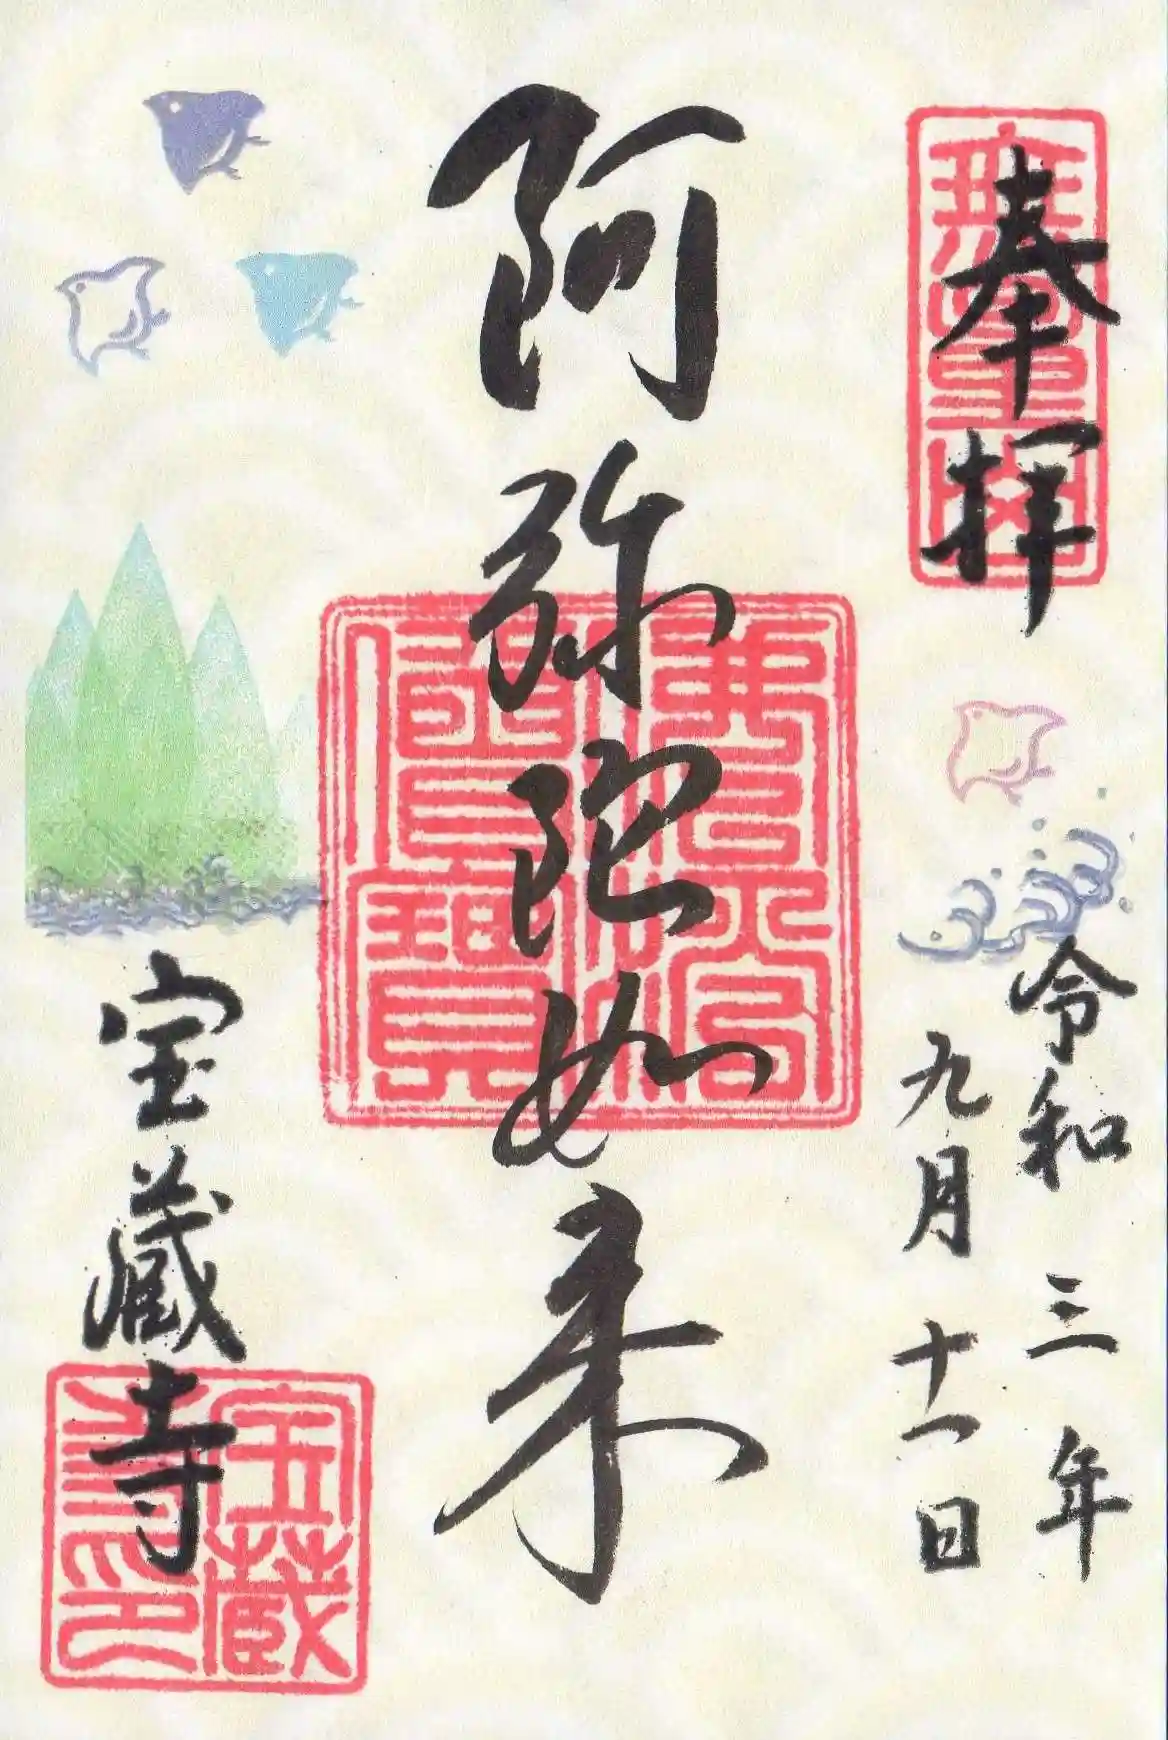 奉拝
令和三年
九月十一日
阿弥陀如来
宝蔵寺
宝蔵
寺印